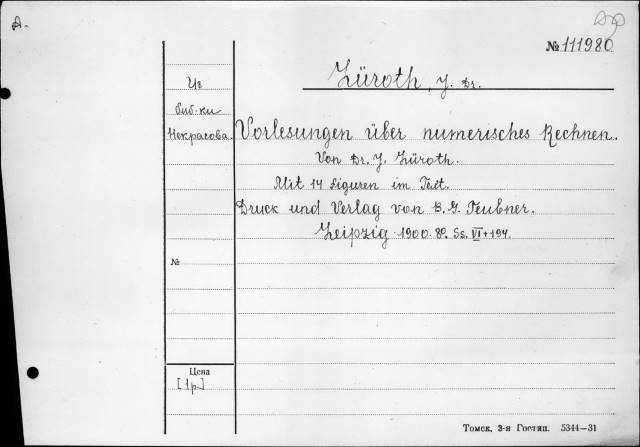 № 111980
Lüroth, J. Dr.
Из
биб-ки
Некрасова.
Vorlesungen über numerisches Rechnen.
Von Dr. J. Lüroth.
Mit 14 Figuren im Text.
Druck und Verlag von B. G. Teubner.
Leipzig 1900. 8º. Ss. VI + 194.
№
Цена
[1р.]
Томск, 3-я Гостип. 5344—31